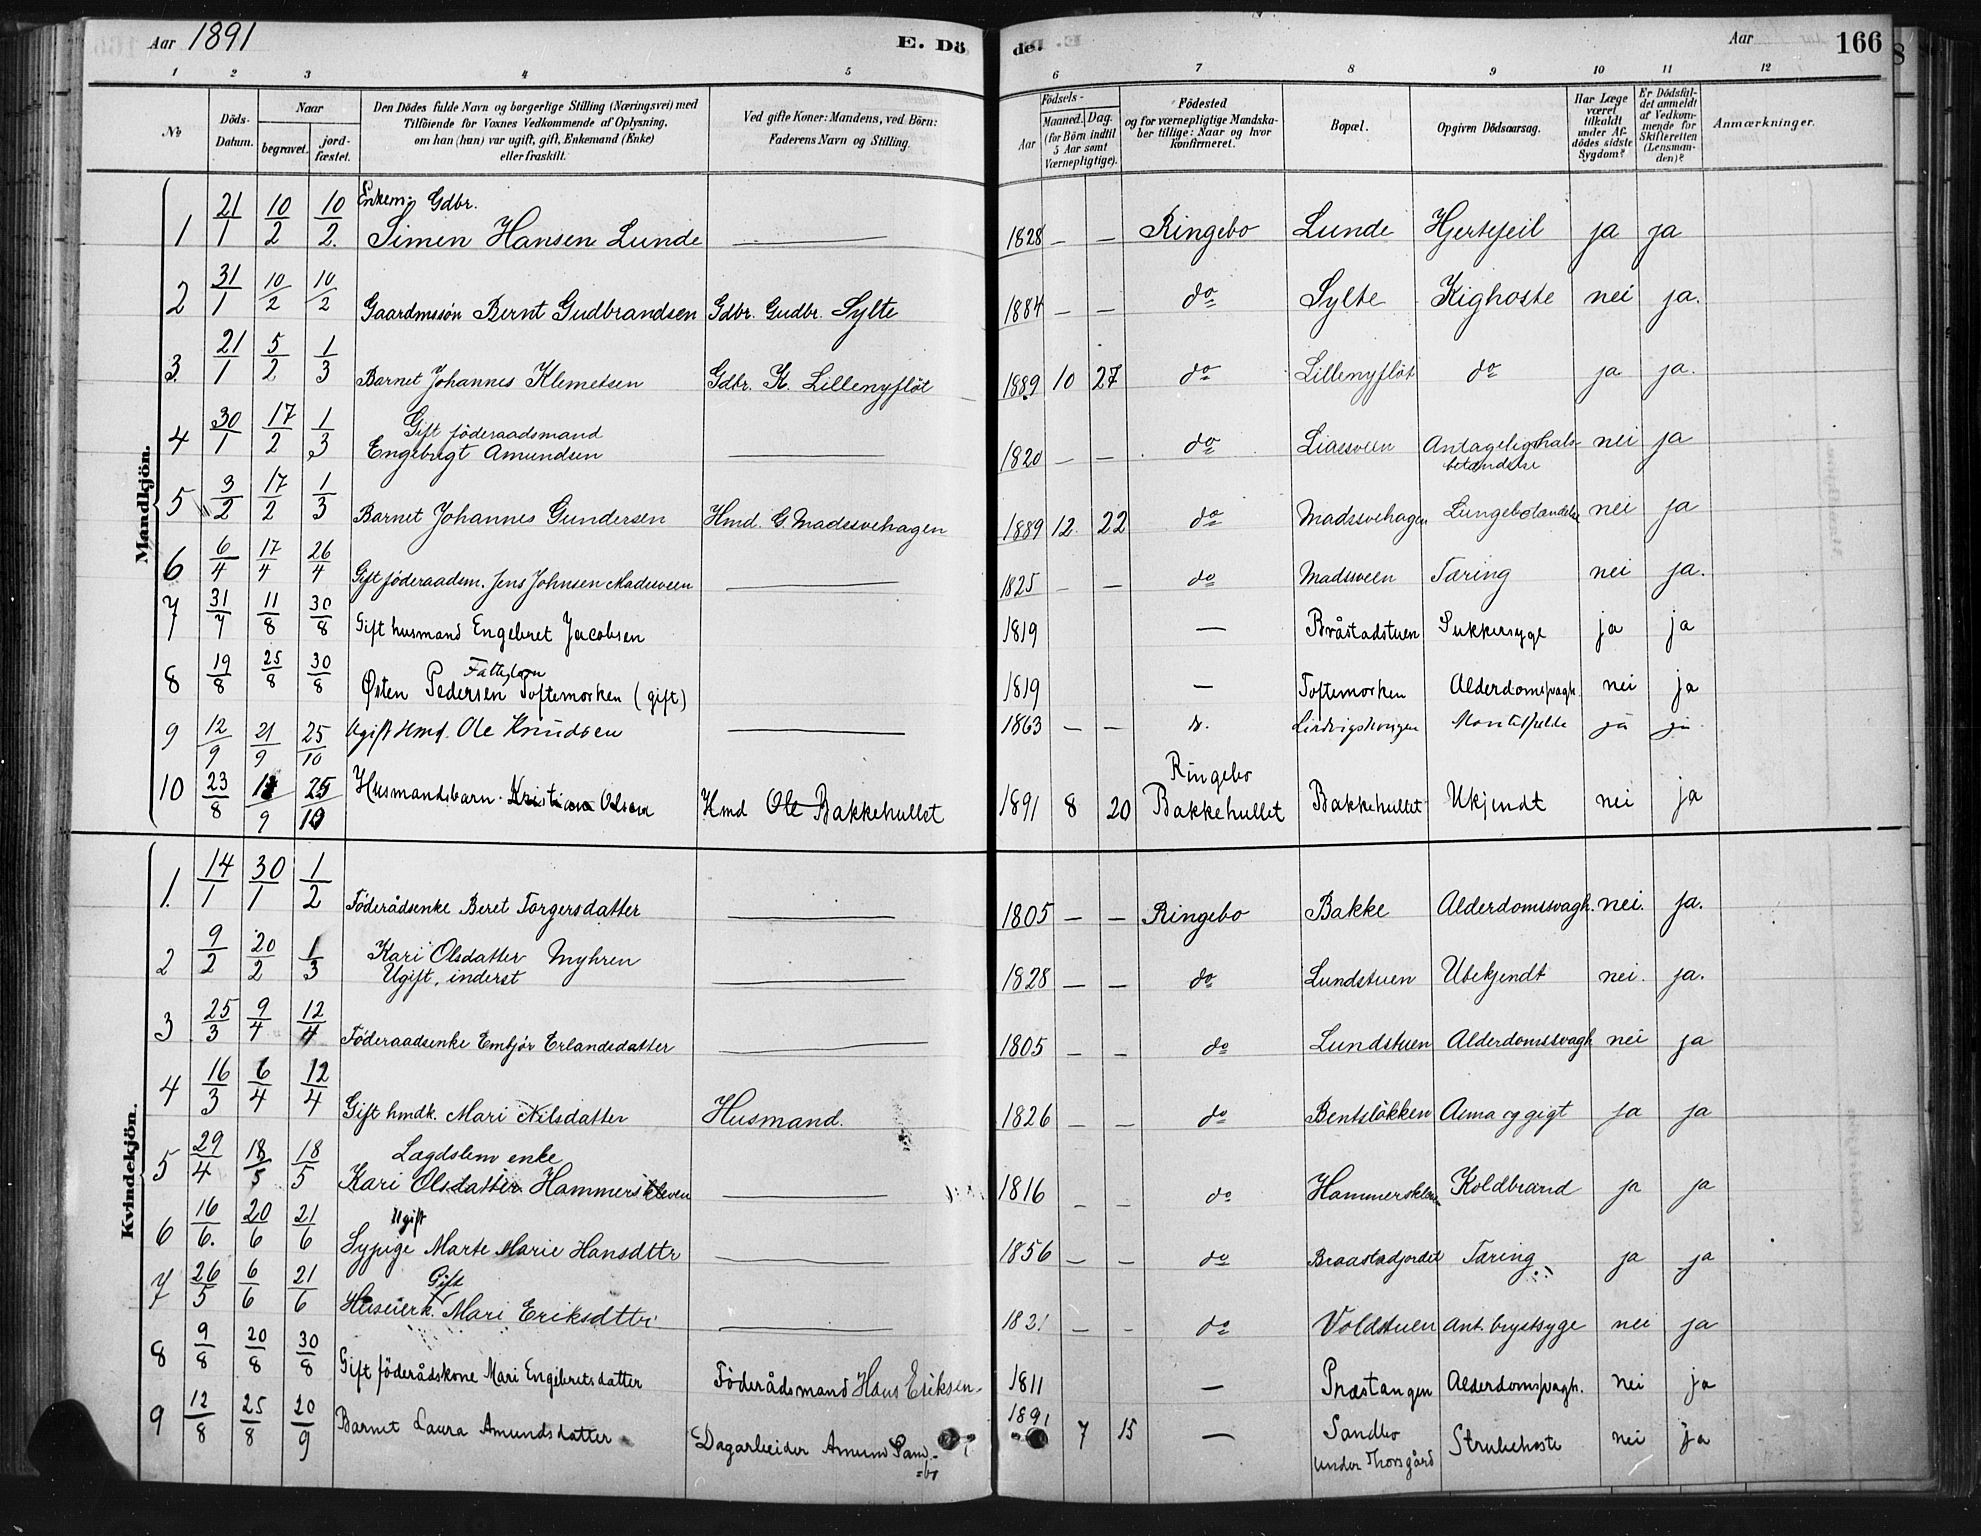 Aar 1891 E. Döde. Aar 166
1 2 3 4 5 6 7 8 9 10 11 12
No Döds-Datum. Naar begravet. jordfæstet.
Den Dödes fulde Navn og borgerlige Stilling (Næringsvei) med
Tilföiende for Voxnes Vedkommende af Oplysning,
om han (hun) var ugift, gift, Enkemand (Enke)
eller fraskilt.
Ved gifte Koner: Mandens, ved Börn:
Faderens Navn og Stilling.
Födsels-
Aar Maaned. Dag.
(for Börn indtil
5 Aar samt
Værnepligtige).
Födested
og for værnepligtige Mandska-
ber tillige: Naar og hvor
konfirmeret.
Bopæl.
Opgiven Dödsaarsag.
Har Læge
været
tilkaldt
under Af-
dödes sidste
Sygdom?
Er Dödsfal-
det anmeldt
af Vedkom-
mende for
Skifteretten
(Lensman-
den)?
Anmærkninger.
Mandkjön.
Enkem. Gdbr.
1 21/1 10/2 10/2. Simen Hansen Lunde — 1828 — — Ringebo Lunde Hjertefeil ja ja
2 31/1 10/2 10/2 Gaardmssön Bernt Gudbrandsen Gdbr. Gudbr. Sylte 1884 — — do Sylte Kighoste nei ja.
3. 21/1 5/2 1/3 Barnet Johannes Klemetsen Gdbr. K. Lillenyflöt 1889 10 27 do Lillenyflöt do ja ja.
4 30/1 17/2 1/3 Gift föderaadsmand
Engebrigt Amundsen — 1820 — — do Liaesveen Antagelig Hals-
betændelse nei ja
5 3/2 17/2 1/3 Barnet Johannes Gundersen Hmd. G. Madssvehagen 1889 12. 22 do Madssvehagen Lungebetændelse nei ja
6 6/4 17/4 26/4 Gift föderaadsm. Jens Johnsen Madssveen — 1825 — — do Madssveen Tæring nei ja.
7 31/7 11/8 30/8 Gift husmand Engebret Jacobsen 1819 — Bråstadstuen Sukkersyge ja ja
8 19/8 25/8 30/8 Østen Pedersen Toftemorken (gift) 1819 — Toftemorken Alderdomssvagh. nei ja
9 12/9 21/9 25/10 Ugift Hmd. Ole Knudsen — 1863 — — ja ja
10 23/8 /9 25/10 Husmandsbarn Kristian Olsen Hmd Ole Bakkehullet 1891 8 20 Ringebo
Bakkehullet Bakkehullet Ukjendt nei ja
Kvindekjön.
1. 14/1 30/1 1/2 Föderådsenke Beret Torgersdatter — 1805 — — Ringebo Bakke Alderdomssvagh. nei. ja.
2 9/2 20/2 1/3 Kari Olsdatter Myhren
Ugift, inderst — 1828 — — do Lundstuen Ubekjendt nei. ja.
3 25/3 9/4 12/4 Föderaadsenke Embjör Erlandsdatter — 1805 — — do Lundstuen Alderdomssvagh nei ja
4 16/3 6/4 12/4 Gift hmdk. Mari Nilsdatter Husmand. 1826 — — do Bentslökken Asma og gigt ja ja
5 29/4 18/5 18/5 Lægdslem enke
Kari Olsdatter Hammerskleven — 1816 — — do Hammersklev Koldbrand ja ja
6 16/6. 20/6 21/6 Ugift
Sypige Marte Marie Hansdttr — 1856 — — do Braastadjordet Tæring. ja ja
7 26/5 6/6 21/6 Gift
Huseierk. Mari Eriksdttr — 1831 — — do Voldstuen Ant. brystsyge nei ja
8 9/8 20/8 30/8 Gift föderådskone Mari Engebretsdatter Föderådsmand Hans Eriksen 1811 — Præstangen Alderdomssvagh. nei ja
9 12/8 25/8 20/9 Barnet Laura Amundsdatter Dagarbeider Amund Sand-
=bo 1891 7 15 — Sandbo
under Thorsgård Strubehoste nei ja